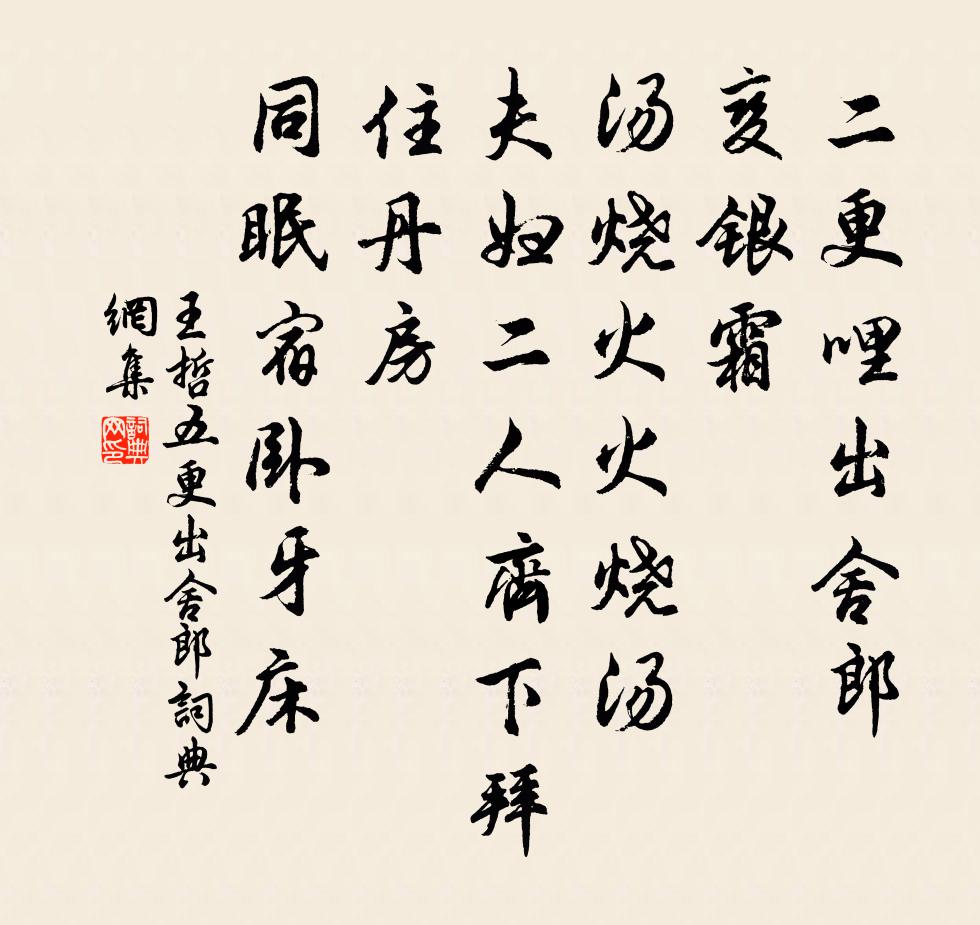 二更哩出舍郎
变银霜
汤烧火火烧汤
夫妇二人齊下拜
住丹房
同眠宿卧牙床
王哲五更出舍郎詞典
網集
詞典網印